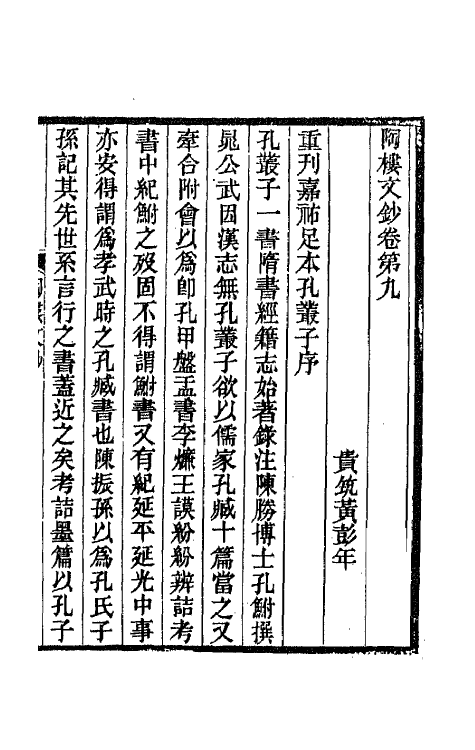 陶樓文鈔卷第九
貴筑黃彭年
重刊嘉祐足本孔叢子序
孔叢子一書隋書經籍志始著錄注陳勝博士孔鮒撰
晁公武因漢志無孔叢子欲以儒家孔臧十篇當之又
牽合附會以為卽孔甲盤盂書李燾王謨紛紛辨詰考
書中紀鮒之歿固不得謂鮒書又有紀延平延光中事
亦安得謂為孝武時之孔臧書也陳振孫以為孔氏子
孫記其先世系言行之書蓋近之矣考詰墨篇以孔子